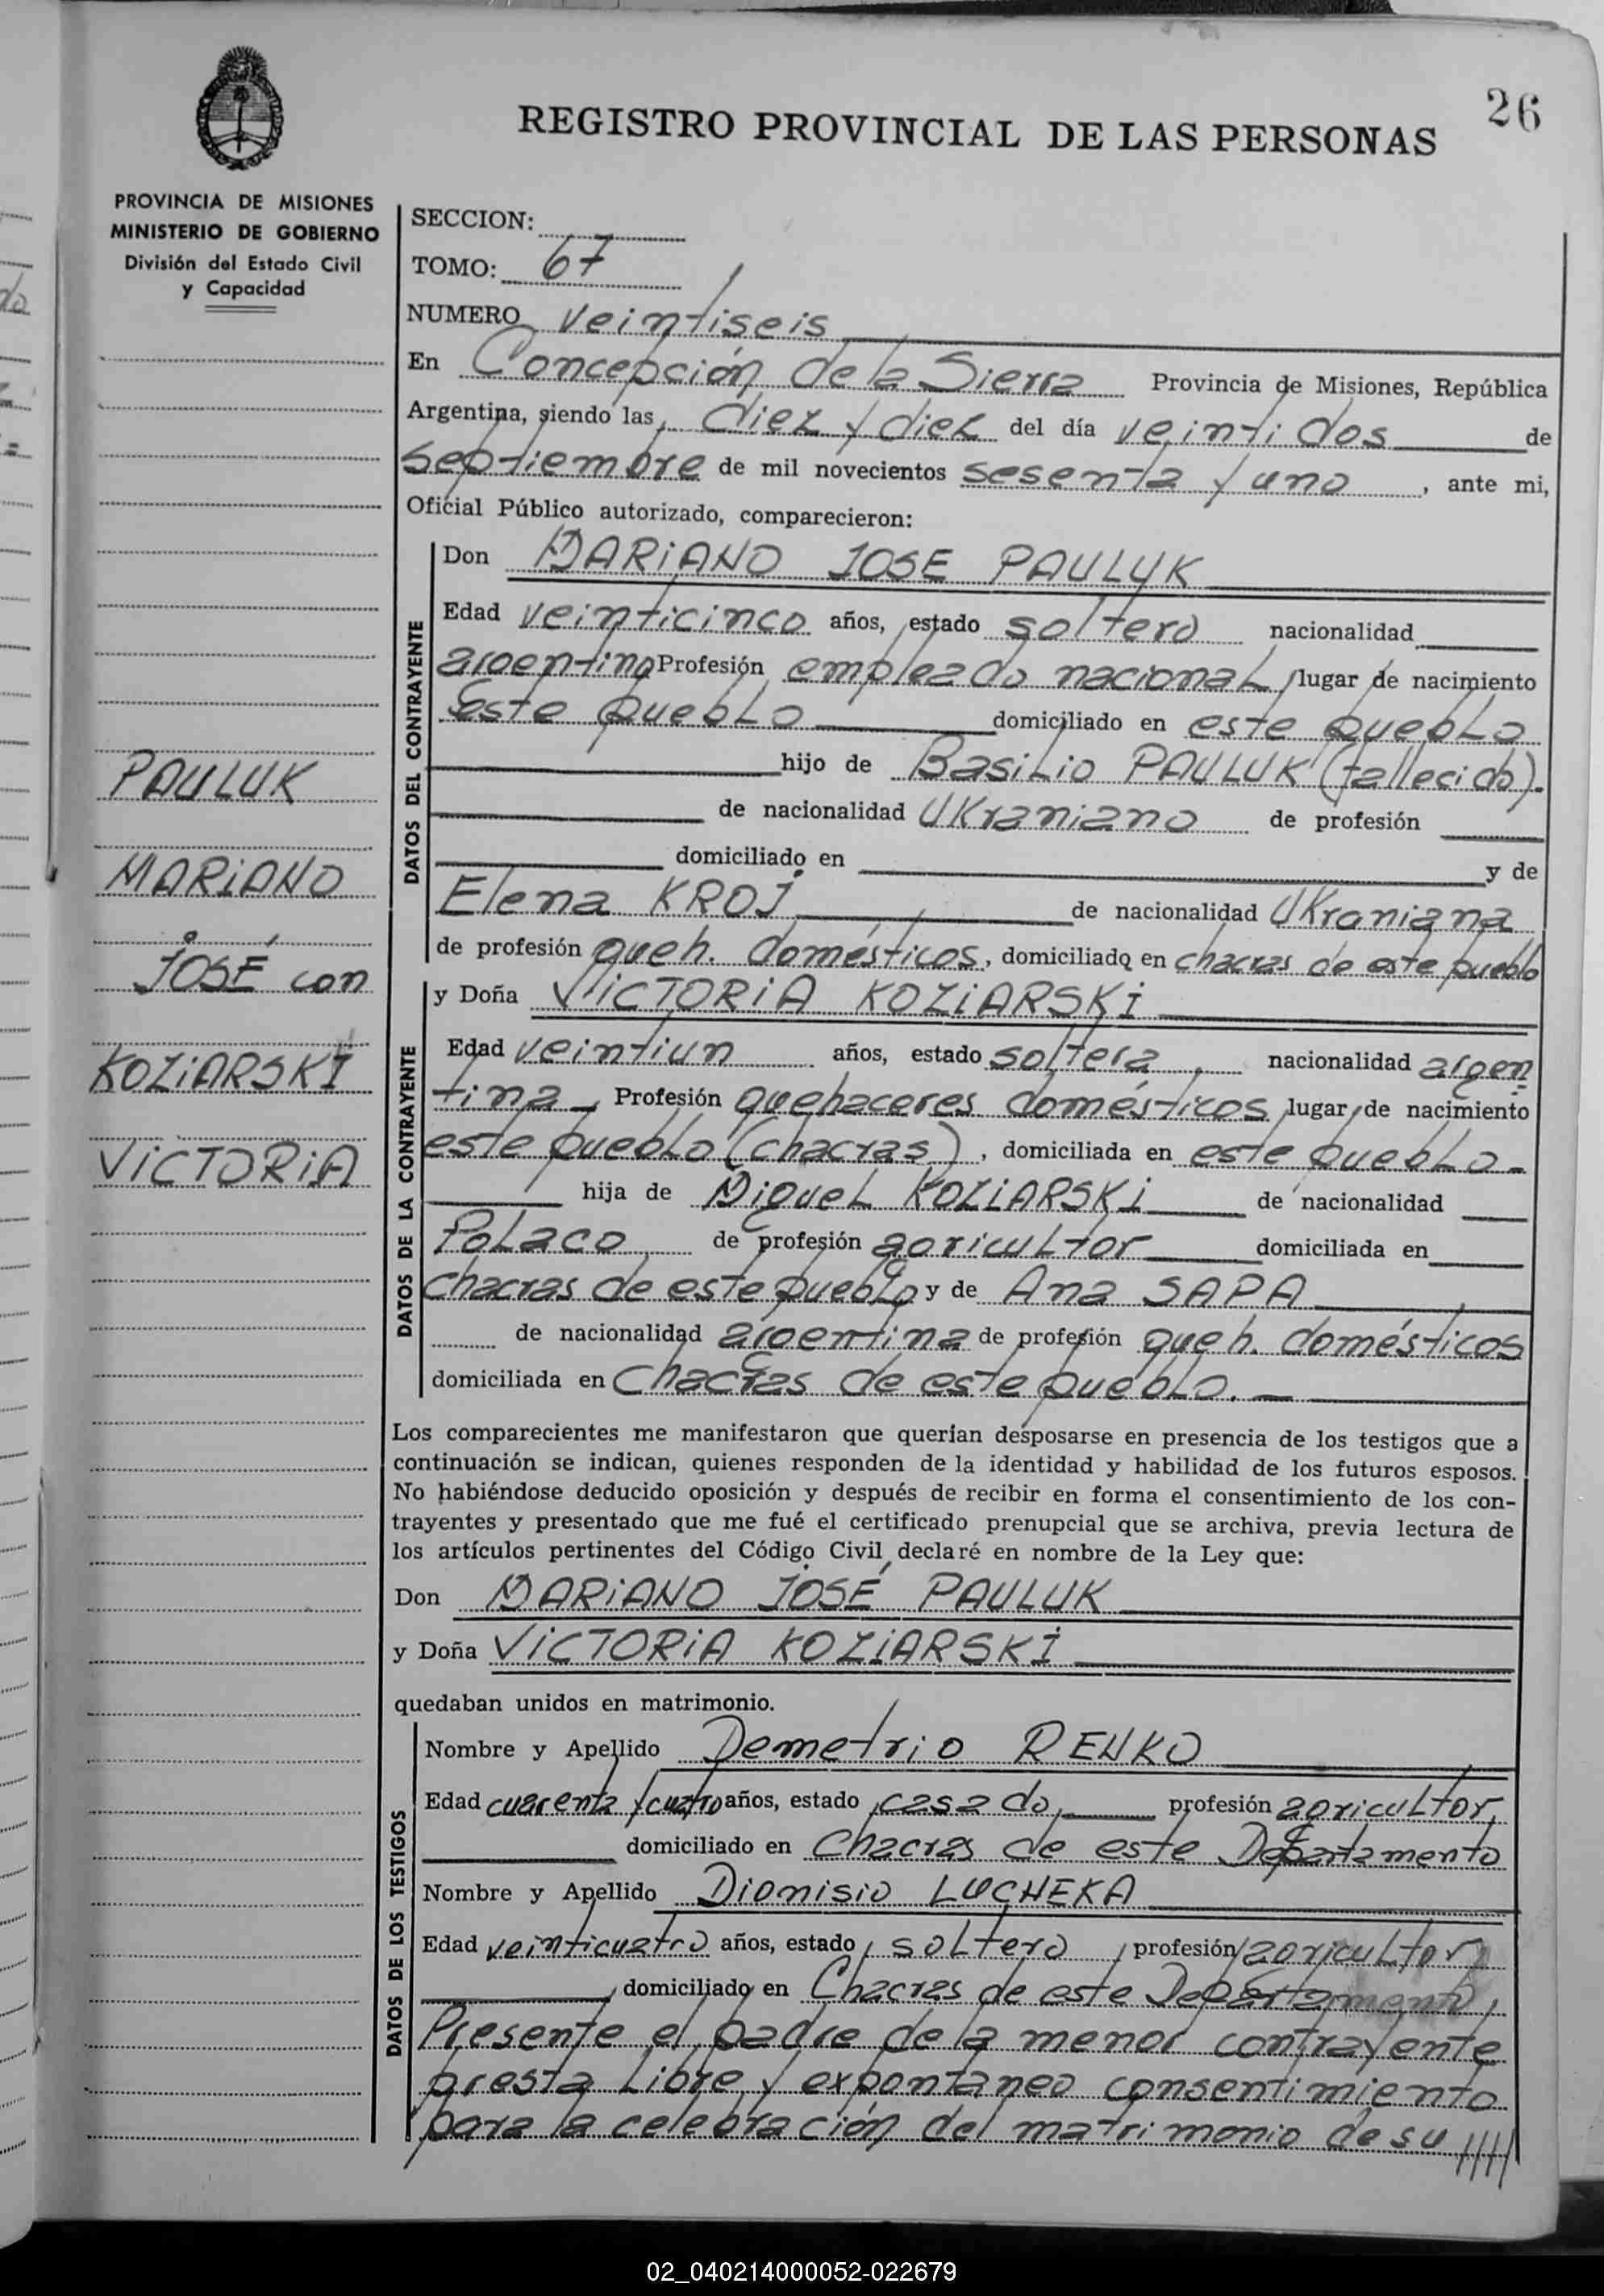 26
REGISTRO PROVINCIAL DE LAS PERSONAS
PROVINCIA DE MISIONES
MINISTERIO DE GOBIERNO
División del Estado Civil
y Capacidad
PAULUK
MARIANO
JOSÉ con
KOZIARSKI
VICTORIA
SECCION:
TOMO: 67
NUMERO veintiseis
En Concepción de la Sierra Provincia de Misiones, República
Argentina, siendo las diez y diez del día veinti dos de
septiembre de mil novecientos sesenta y uno, ante mi,
Oficial Público autorizado, comparecieron:
DATOS DEL CONTRAYENTE
Don MARIANO JOSE PAULUK
Edad veinticinco años, estado soltero nacionalidad
argentino Profesión empleado nacional, lugar de nacimiento
Este pueblo domiciliado en este pueblo
hijo de Basilio PAULUK (fallecido).
de nacionalidad Ukraniano de profesión
domiciliado en y de
Elena KROJ de nacionalidad Ukraniana
de profesión queh. domésticos, domiciliado en chacras de este pueblo
DATOS DE LA CONTRAYENTE
y Doña VICTORIA KOZIARSKI
Edad veintiun años, estado soltera, nacionalidad argen
tina Profesión quehaceres domésticos lugar de nacimiento
este pueblo (chacras), domiciliada en este pueblo-
hija de Miguel KOZIARSKI de nacionalidad
Polaco, de profesión agricultor domiciliada en
chacras de este pueblo y de Ana SAPA
de nacionalidad argentina de profesión queh. domésticos
domiciliada en Chacras de este pueblo.
Los comparecientes me manifestaron que querían desposarse en presencia de los testigos que a
continuación se indican, quienes responden de la identidad y habilidad de los futuros esposos.
No habiéndose deducido oposición y después de recibir en forma el consentimiento de los con-
trayentes y presentado que me fué el certificado prenupcial que se archiva, previa lectura de
los artículos pertinentes del Código Civil declaré en nombre de la Ley que:
Don MARIANO JOSÉ PAULUK
y Doña VICTORIA KOZIARSKI
quedaban unidos en matrimonio.
DATOS DE LOS TESTIGOS
Nombre y Apellido Demetrio RENKO
Edad cuarenta y cuatro años, estado casado, profesión agricultor,
domiciliado en Chacras de este Departamento
Nombre y Apellido Dionisio LUCHEKA
Edad veinticuatro años, estado soltero, profesión agricultor
domiciliado en Chacras de este Departamento,
Presente el padre de la menor contrayente
presta libre y expontaneo consentimiento
para la celebración del matrimonio de su ////
02_040214000052-022679